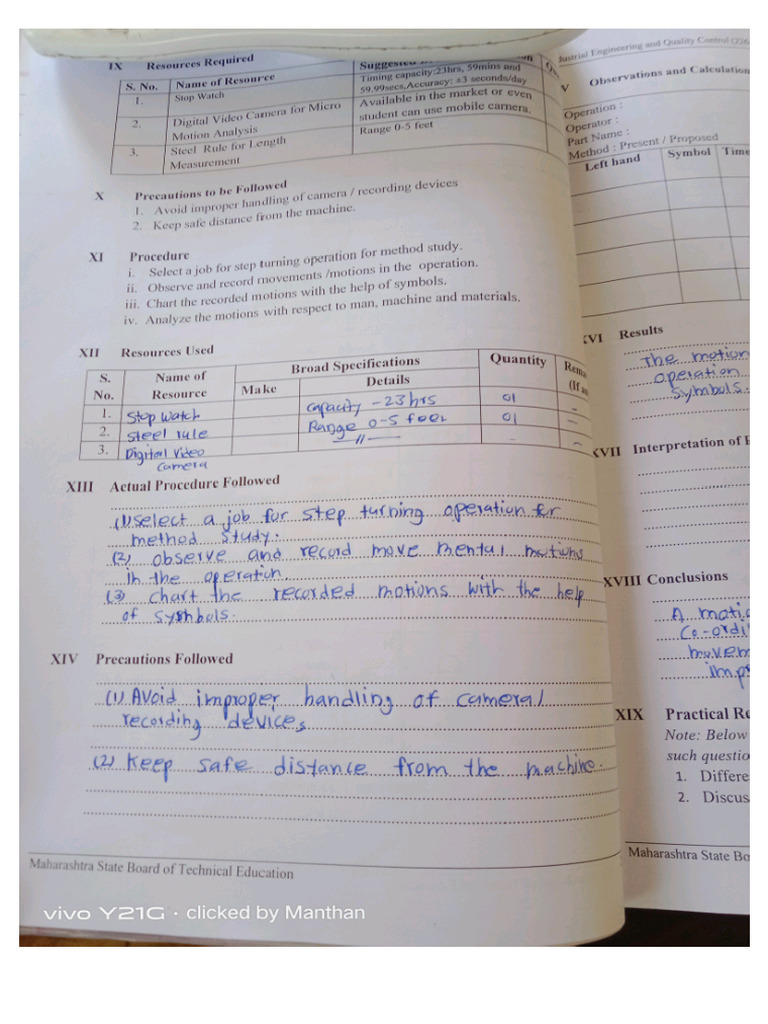 IX Resources Required
S. No. Name of Resource Suggested
1. Stop Watch Timing capacity:23hrs, 59mins and 59.99secs,Accuracy: ±3 seconds/day
2. Digital Video Camera for Micro Motion Analysis Available in the market or even student can use mobile camera.
3. Steel Rule for Length Measurement Range 0-5 feet
X Precautions to be Followed
1. Avoid improper handling of camera / recording devices
2. Keep safe distance from the machine.
XI Procedure
i. Select a job for step turning operation for method study.
ii. Observe and record movements /motions in the operation.
iii. Chart the recorded motions with the help of symbols.
iv. Analyze the motions with respect to man, machine and materials.
XII Resources Used
S. No. Name of Resource Broad Specifications Quantity
Make Details (If
1. Stop watch capacity - 23 hrs 01 -
2. steel rule Range 0-5 feet 01 -
3. Digital Video camera —〃— - -
XIII Actual Procedure Followed
(1) select a job for step turning operation for
method study.
(2) observe and record move mental motions
in the operation.
(3) chart the recorded motions with the help
of symbols.
XIV Precautions Followed
(1) Avoid improper handling of camera/
recording devices
(2) Keep safe distance from the machine.
Maharashtra State Board of Technical Education
vivo Y21G · clicked by Manthan
Industrial Engineering and Quality Control
V Observations and Calculation
Operation :
Operator :
Part Name :
Method : Present / Proposed
Left hand Symbol Time
XVI Results
The motion
operation
symbols.
XVII Interpretation of
XVIII Conclusions
A
Co-ordi
movem
imp
XIX Practical Re
Note: Below
such questio
1. Differe
2. Discus
Maharashtra State Bo